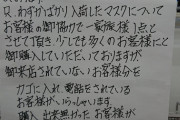 只、わずかばかり入荷したマスクに
お客様の御協力で一家族1点と
させて頂き、少しでも多くのお客様に
御購入していただいておりますが
御来店されていないお客様分を
カゴに入れ電話をされている
お客様がいらっしゃいます
購入出来無かったお客様が